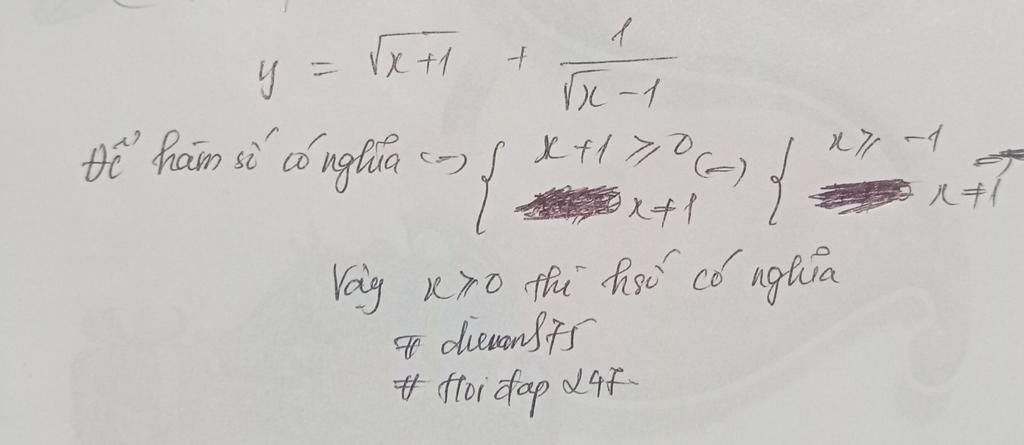 y = √x+1 + 1/√x - 1
Để hàm số có nghĩa <=> { x+1 ≥ 0 x≠1 <=> { x ≥ -1 x≠1 =>
Vậy x ≥ 0 thì hsố có nghĩa
#
# Hoi đap 247